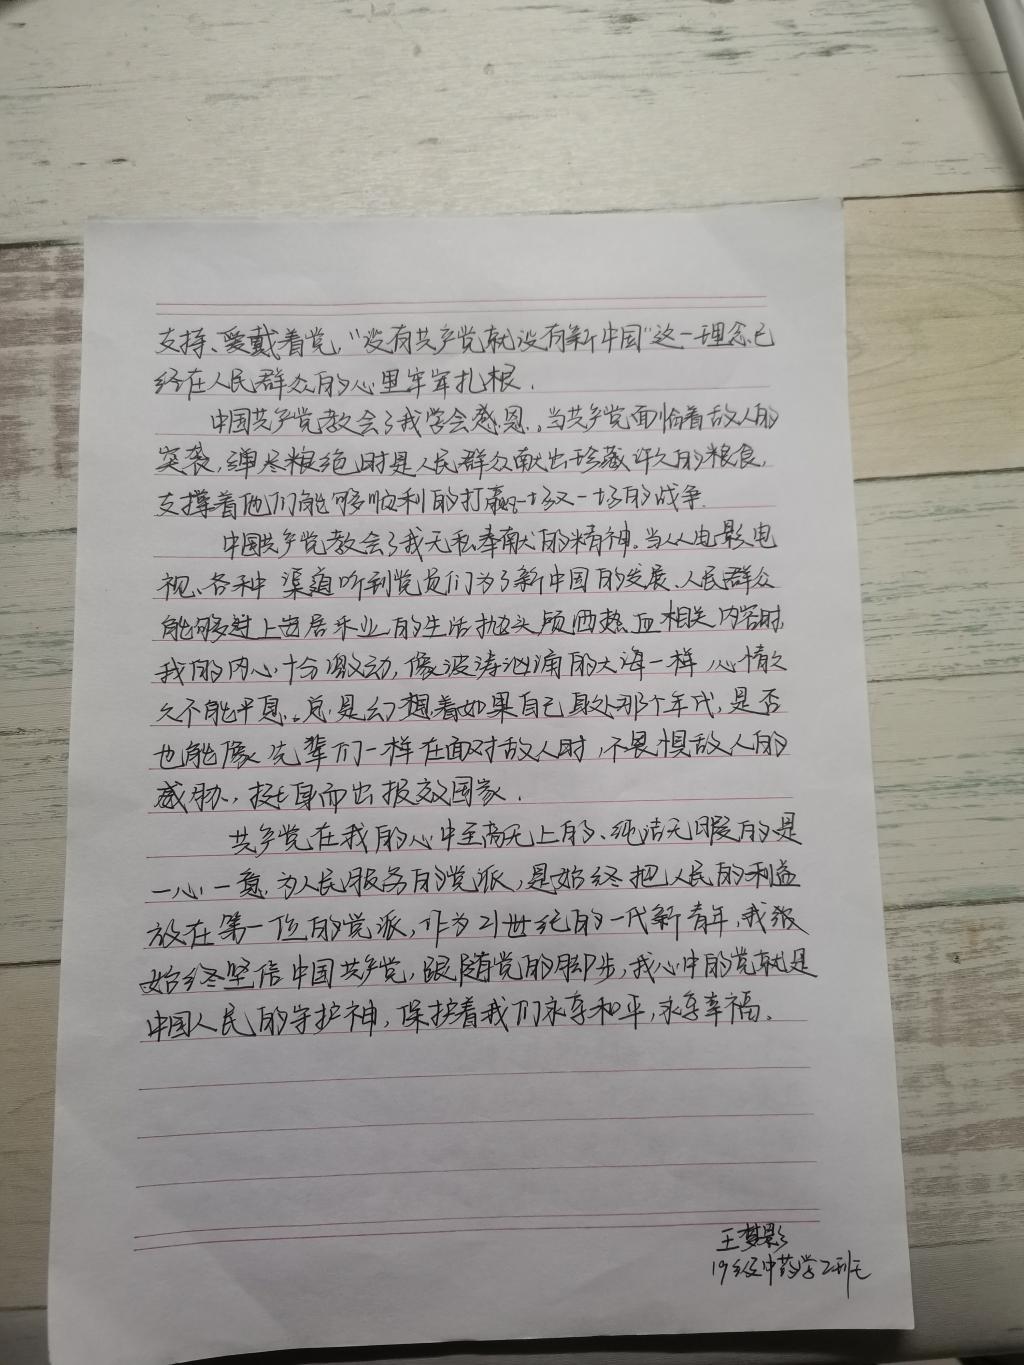 支持、爱戴着党,“没有共产党就没有新中国”这一理念已
经在人民群众的心里牢牢扎根.
中国共产党教会了我学会感恩.,当共产党面临着敌人的
突袭,弹尽粮绝时是人民群众献出珍藏许久的粮食,
支撑着他们能够顺利的打赢一场又一场的战争.
中国共产党教会了我无私奉献的精神.当从电影电
视、各种渠道听到党员们为了新中国的发展、人民群众
能够过上安居乐业的生活抛头颅洒热血相关内容时,
我的内心十分激动,像波涛汹涌的大海一样,心情久
久不能平息.总是幻想着如果自己身处那个年代,是否
也能像先辈们一样在面对敌人时,不畏惧敌人的
威胁,挺身而出报效国家.
共产党在我的心中至高无上的、纯洁无暇的是
一心一意为人民服务的党派,是始终把人民的利益
放在第一位的党派,作为21世纪的一代新青年,我将
始终坚信中国共产党,跟随党的脚步,我心中的党就是
中国人民的守护神,保护着我们永享和平,永享幸福.
王梦影
19级中药学2班